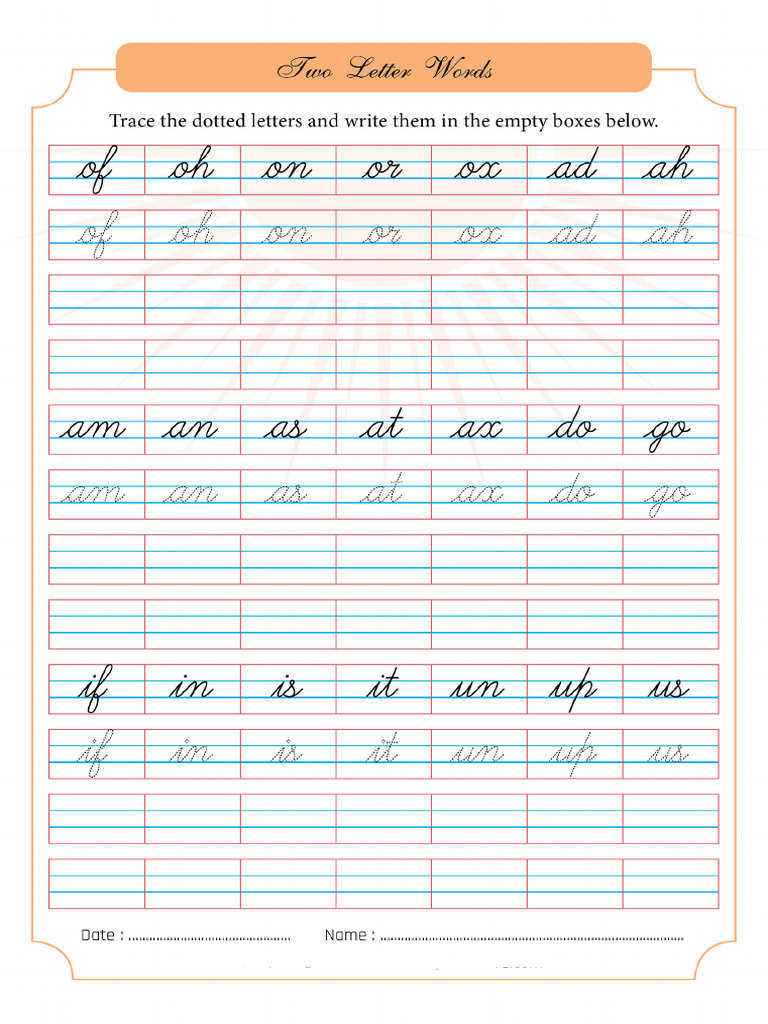 Two Letter Words
Trace the dotted letters and write them in the empty boxes below.
of oh on or ox ad ah
of oh on or ox ad ah
am an as at ax do go
am an as at ax do go
if in is it un up us
if in is it un up us
Date : ................................................ Name : ................................................................................